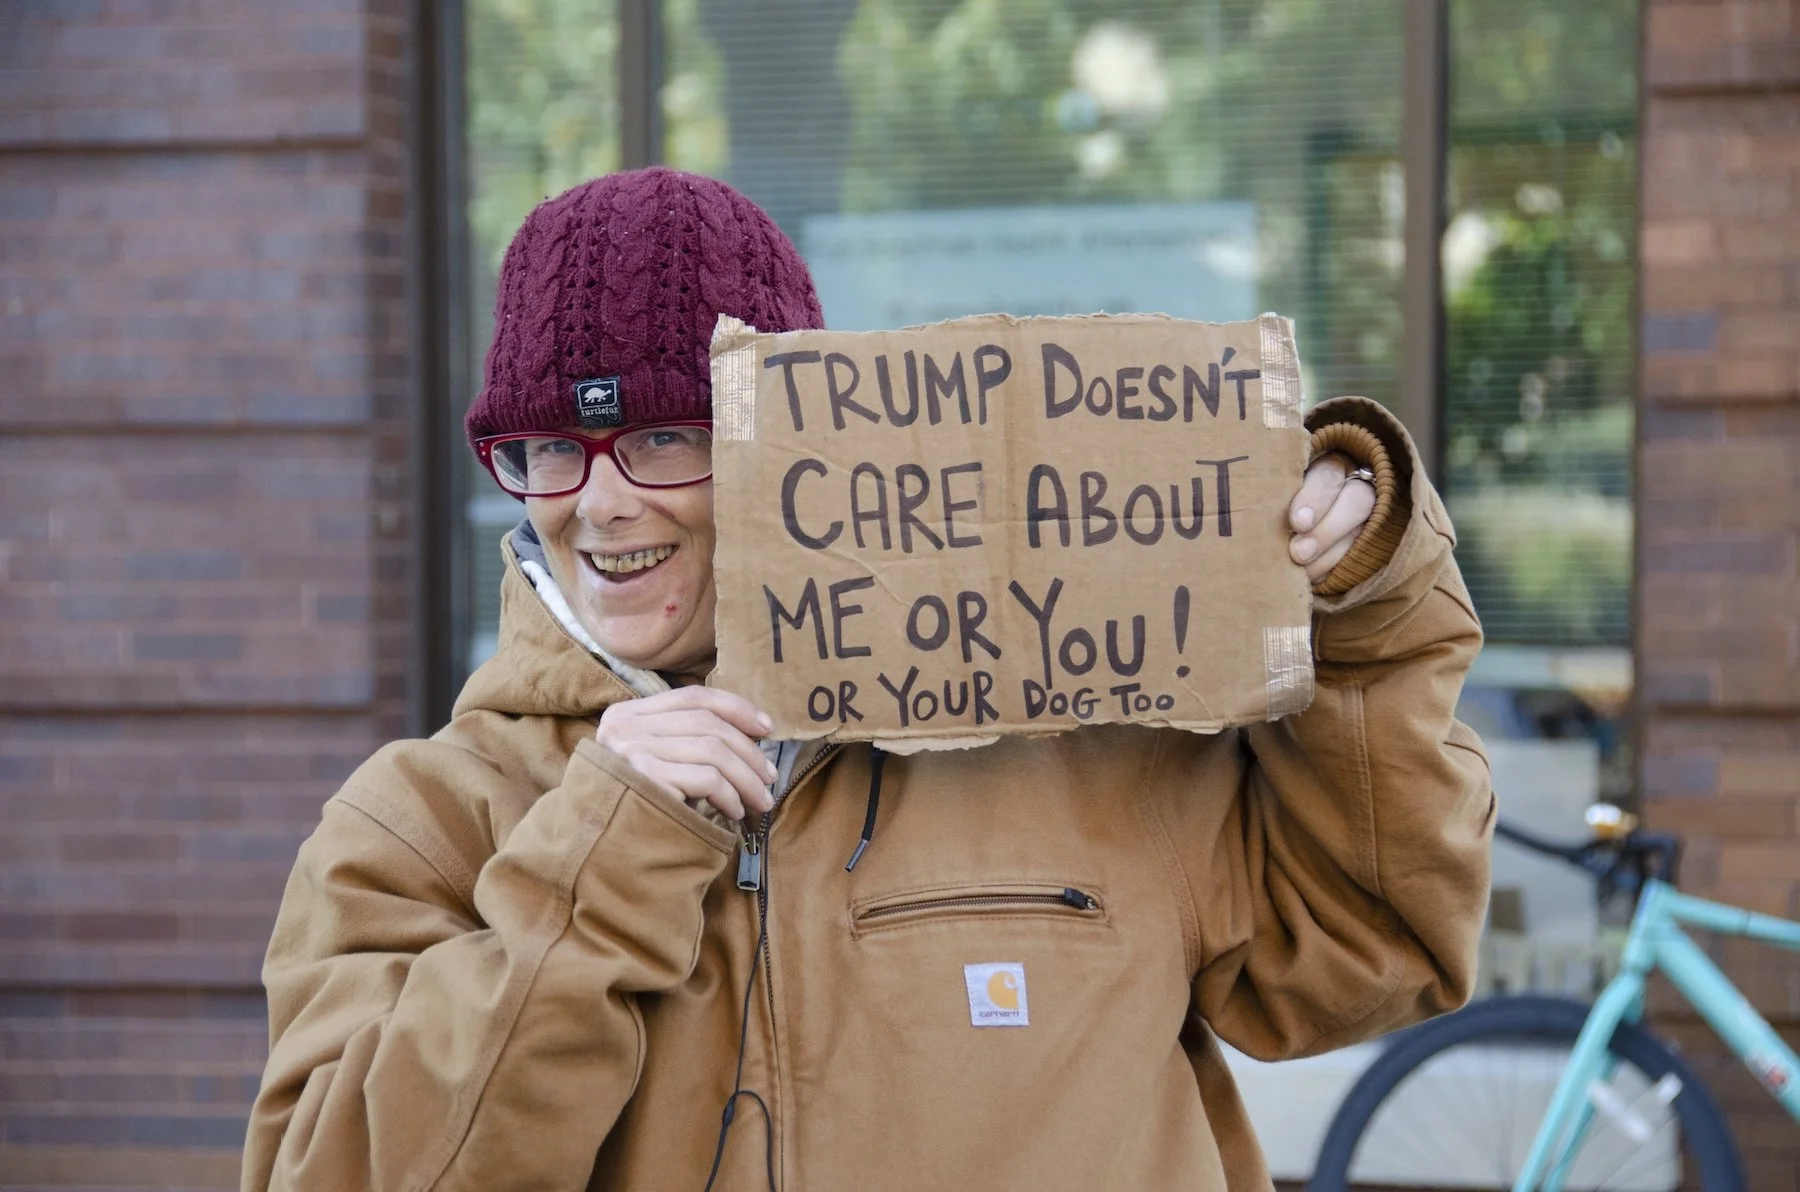 TRUMP DOESN'T
CARE ABOUT
ME OR YOU!
OR YOUR DOG TOO
turtlefur
carhartt